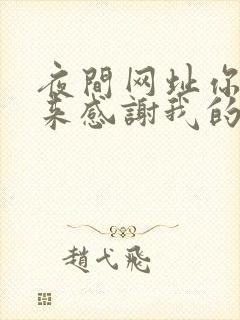 夜間网址你
来感謝我的
趙弋飛